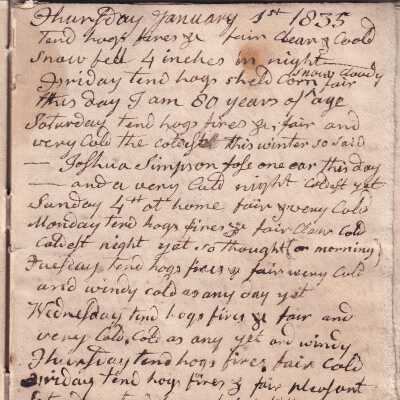 Thursday January 1st 1835
Tend hogs fires &c fair clear & Coold
Snow fell 4 inches in night
Friday tend hogs sheld corn fair snow cloudy
this day I am 80 years of age
Saturday tend hogs fires &c fair and
very Cold the coldest this winter so said
— Joshua Simpson fose one ear this day
— and a very Cold night coldest yet
Sunday 4th at home fair & very Cold
Monday tend hogs fires &c fair clear Cold
Coldest night yet so thought (or morning)
Tuesday tend hogs fires & fair very Cold
and windy cold as any day yet
Wednesday tend hogs fires & fair and
very Cold, Cold as any yet and windy
Thursday tend hogs fires fair Cold
Friday tend hogs fires & fair pleasant